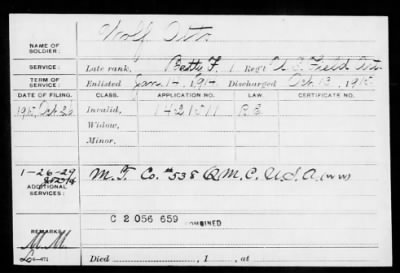 Wolf, Otto
NAME OF SOLDIER:
SERVICE: Late rank, Batty F. 1 Reg't U.S. Field Arty
TERM OF SERVICE: Enlisted Jan. 14, 1914 Discharged Oct. 13, 1915
DATE OF FILING. CLASS. APPLICATION NO. LAW.
1915, Oct. 26 Invalid, 1421511 R.E.
Widow,
Minor,
1-26-29
ADDITIONAL SERVICES: M.T. Co. #538 Q.M.C. U.S.A. (WW)
C 2 056 659 COMBINED
REMARKS:
M.M.
Died , 1 , at